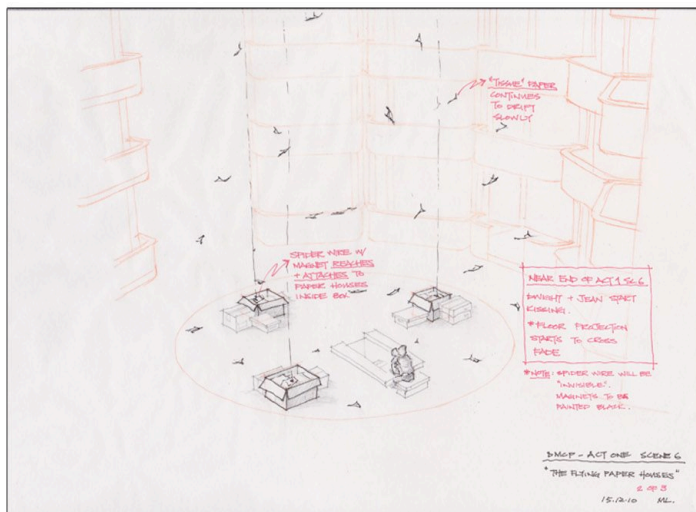 "TISSUE" PAPER
CONTINUES
TO DRIFT
SLOWLY
SPIDER WIRE W/
MAGNET REACHES
+ ATTACHES TO
PAPER HOUSES
INSIDE BOX
NEAR END OF ACT 1 SC.6
DWIGHT + JEAN START
KISSING.
* FLOOR PROJECTION
STARTS TO CROSS
FADE
* NOTE: SPIDER WIRE WILL BE
"INVISIBLE".
MAGNETS TO BE
PAINTED BLACK.
DMCP - ACT ONE SCENE 6
"THE FLYING PAPER HOUSES"
2 OF 3
15.12.10 ML.